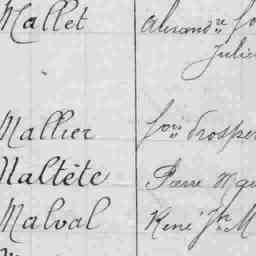 Mallet Alexandre
Julie
Mallier fois Prosper
Maltête Pierre
Malval René Jh M